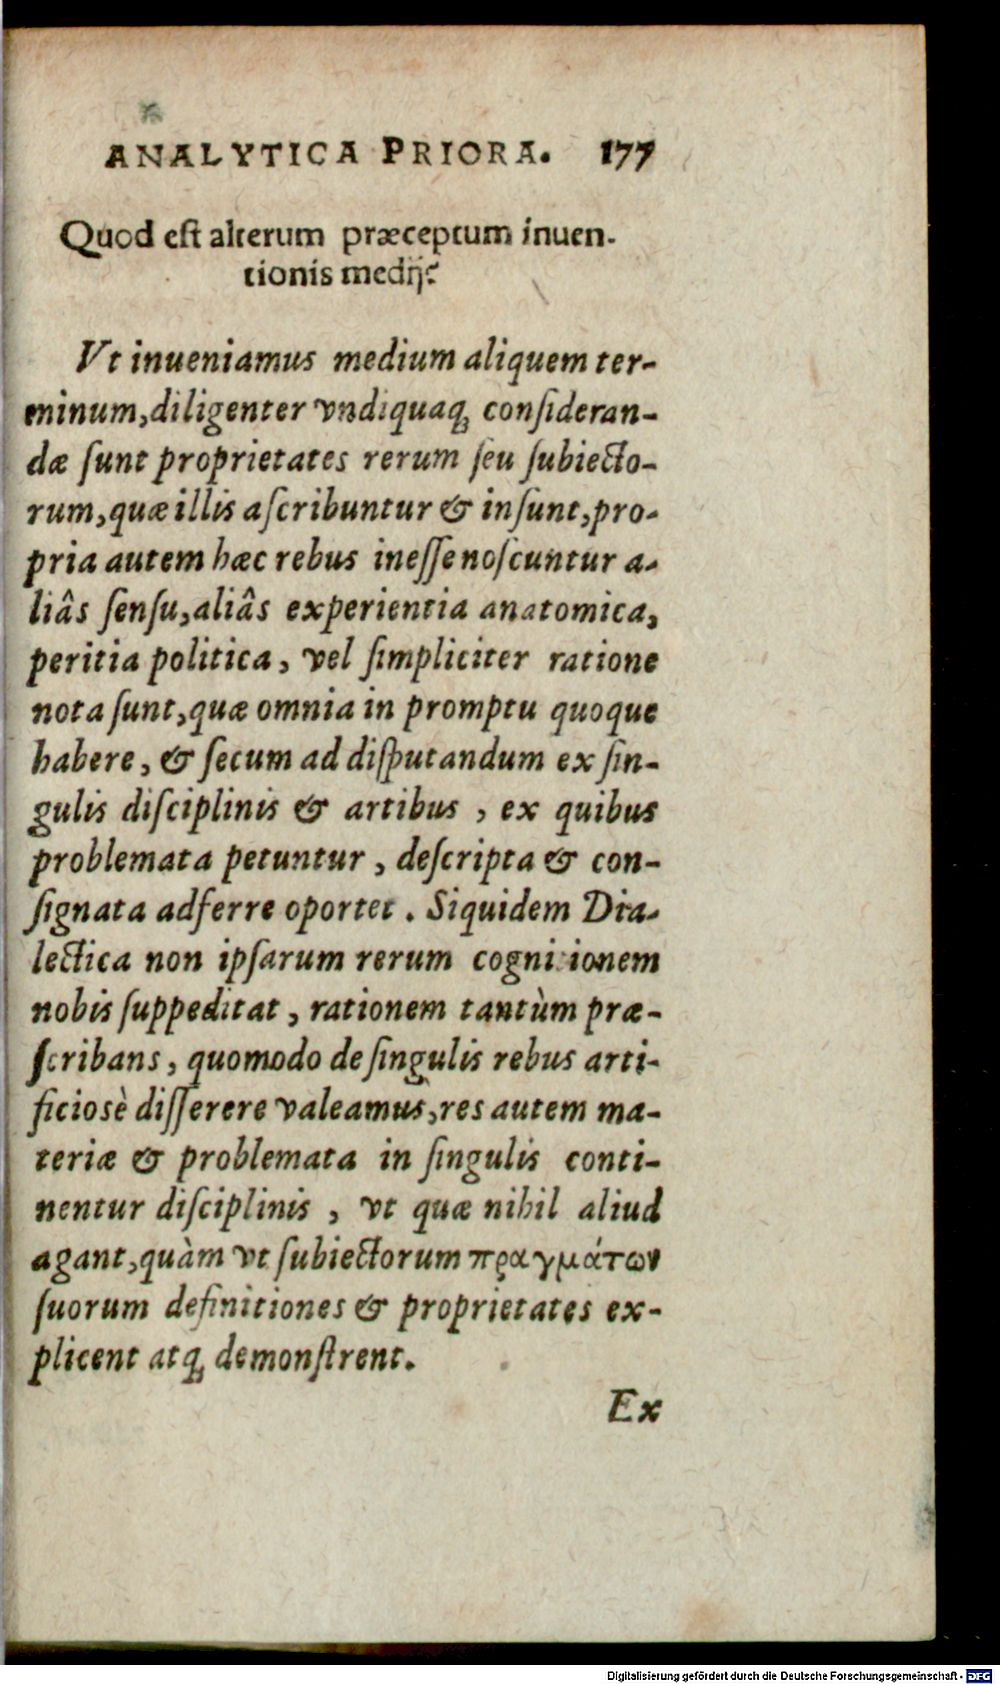 ANALYTICA PRIORA. 177
Quod eſt alterum præceptum inuen-
tionis medij?
Vt inueniamus medium aliquem ter-
minum, diligenter vndiquaq; conſideran-
dæ ſunt proprietates rerum ſeu ſubiecto-
rum, quæ illis aſcribuntur & inſunt, pro-
pria autem hæc rebus ineſſe noſcuntur a-
liâs ſenſu, aliâs experientia anatomica,
peritia politica, vel ſimpliciter ratione
nota ſunt, quæ omnia in promptu quoque
habere, & ſecum ad diſputandum ex ſin-
gulis diſciplinis & artibus, ex quibus
problemata petuntur, deſcripta & con-
ſignata adferre oportet. Siquidem Dia-
lectica non ipſarum rerum cognitionem
nobis ſuppeditat, rationem tantùm præ-
ſcribans, quomodo de ſingulis rebus arti-
ficiosè diſſerere valeamus, res autem ma-
teriæ & problemata in ſingulis conti-
nentur diſciplinis, vt quæ nihil aliud
agant, quàm vt ſubiectorum πραγμάτων
ſuorum definitiones & proprietates ex-
plicent atq; demonſtrent.
Ex
Digitalisierung gefördert durch die Deutsche Forschungsgemeinschaft - DFG